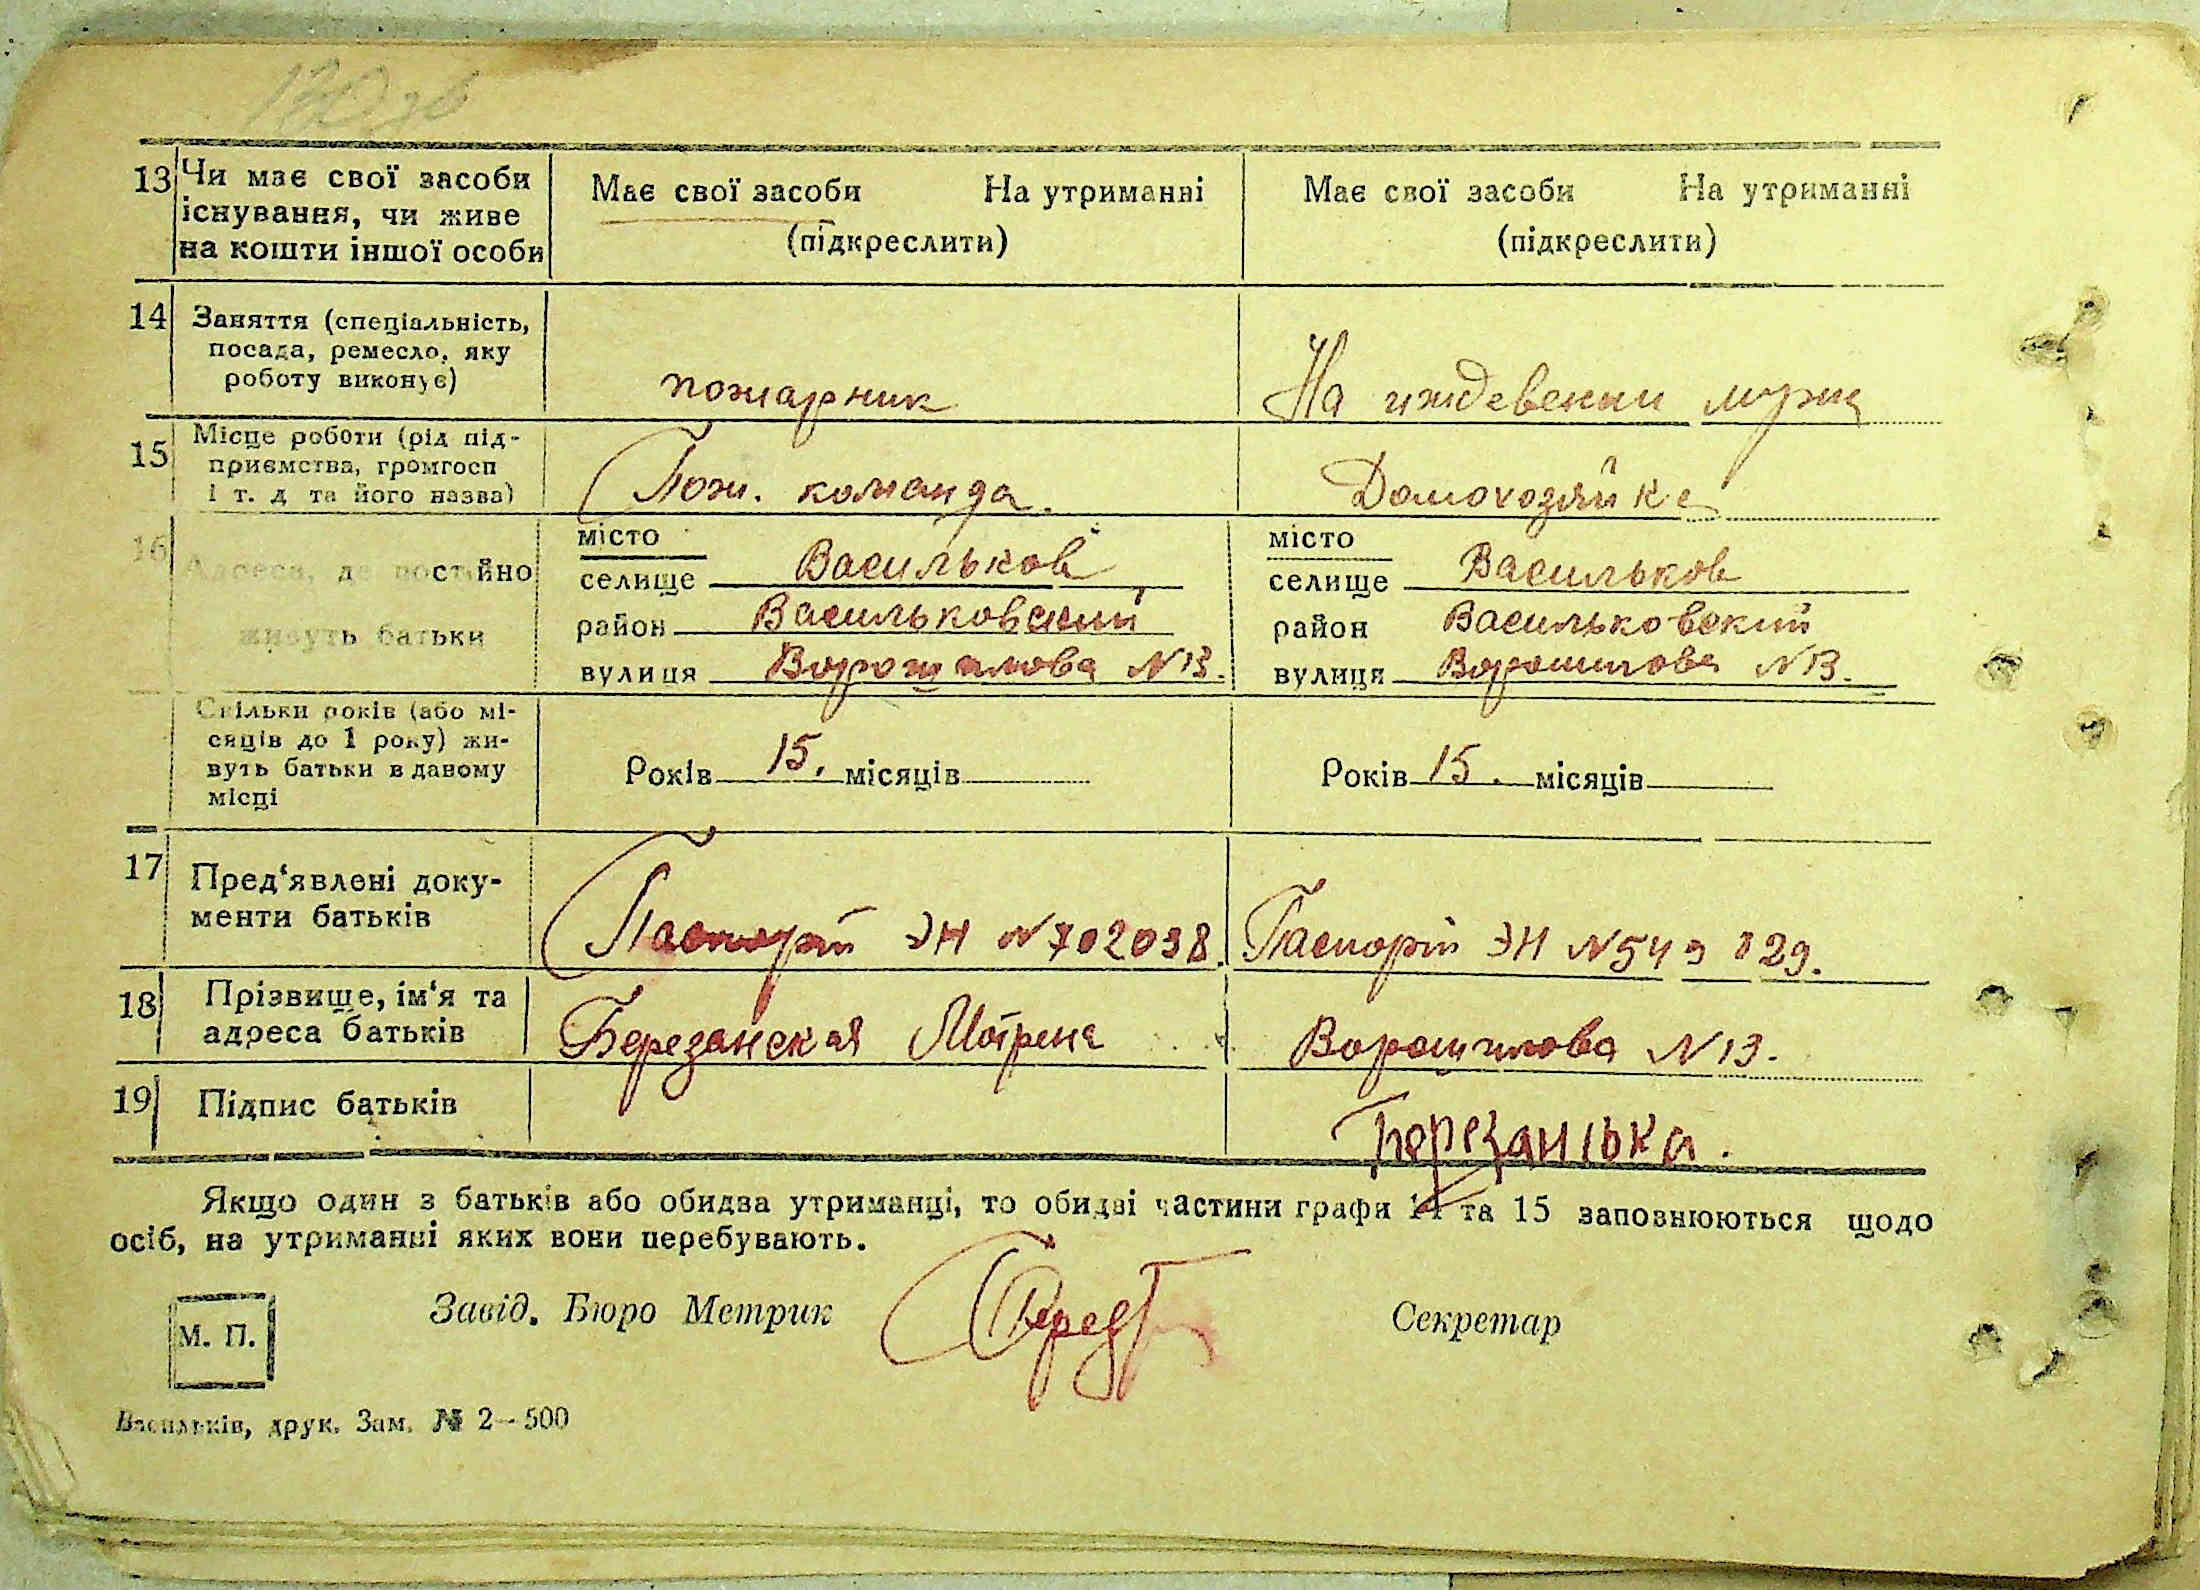 13 Чи має свої засоби існування, чи живе на кошти іншої особи
Має свої засоби На утриманні
(підкреслити)
Має свої засоби На утриманні
(підкреслити)
14 Заняття (спеціальність,
посада, ремесло, яку
роботу виконує)
пожарник
На иждевении мужа
15 Місце роботи (рід під-
приємства, громгосп
і т. д та його назва)
Пож. команда.
Домохозяйка
16 Адреса, де постійно
живуть батьки
місто
селище Васильков
район Васильковский
вулиця Ворошилова N 13.
місто
селище Васильков
район Васильковский
вулиця Ворошилова N 13.
Скільки років (або мі-
сяців до 1 року) жи-
вуть батьки в даному
місці
Років 15. місяців
Років 15. місяців
17 Пред‘явлені доку-
менти батьків
Паспорт ЭН N 702038.
Паспорт ЭН N 549 829.
18 Прізвище, ім‘я та
адреса батьків
Березанская Мотрена
Ворошилова N 13.
19 Підпис батьків
Березанська.
Якщо один з батьків або обидва утриманці, то обидві частини графи 14 та 15 заповнюються щодо
осіб, на утриманні яких вони перебувають.
М. П.
Завід. Бюро Метрик
Секретар
Васильків, друк. Зам. № 2—500